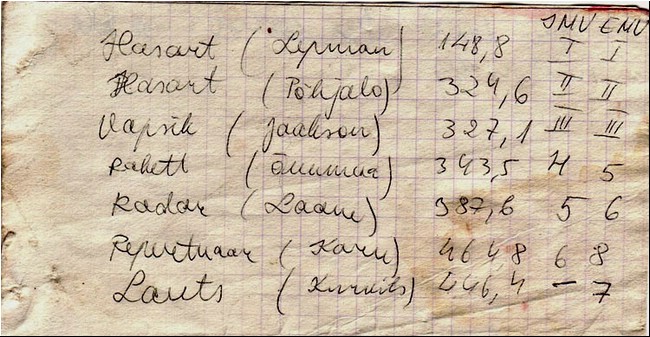 JMV EMV
Hasart (Lepman) 148,8 I I
Hasart (Põhjala) 324,6 II II
Vapsik (Jaakson) 327,1 III III
Rakett (Õunmaa) 343,5 4 5
Radar (Laane) 387,6 5 6
Repertuaar (Karu) 464,8 6 8
Lauts (Kurvits) 446,4 – 7